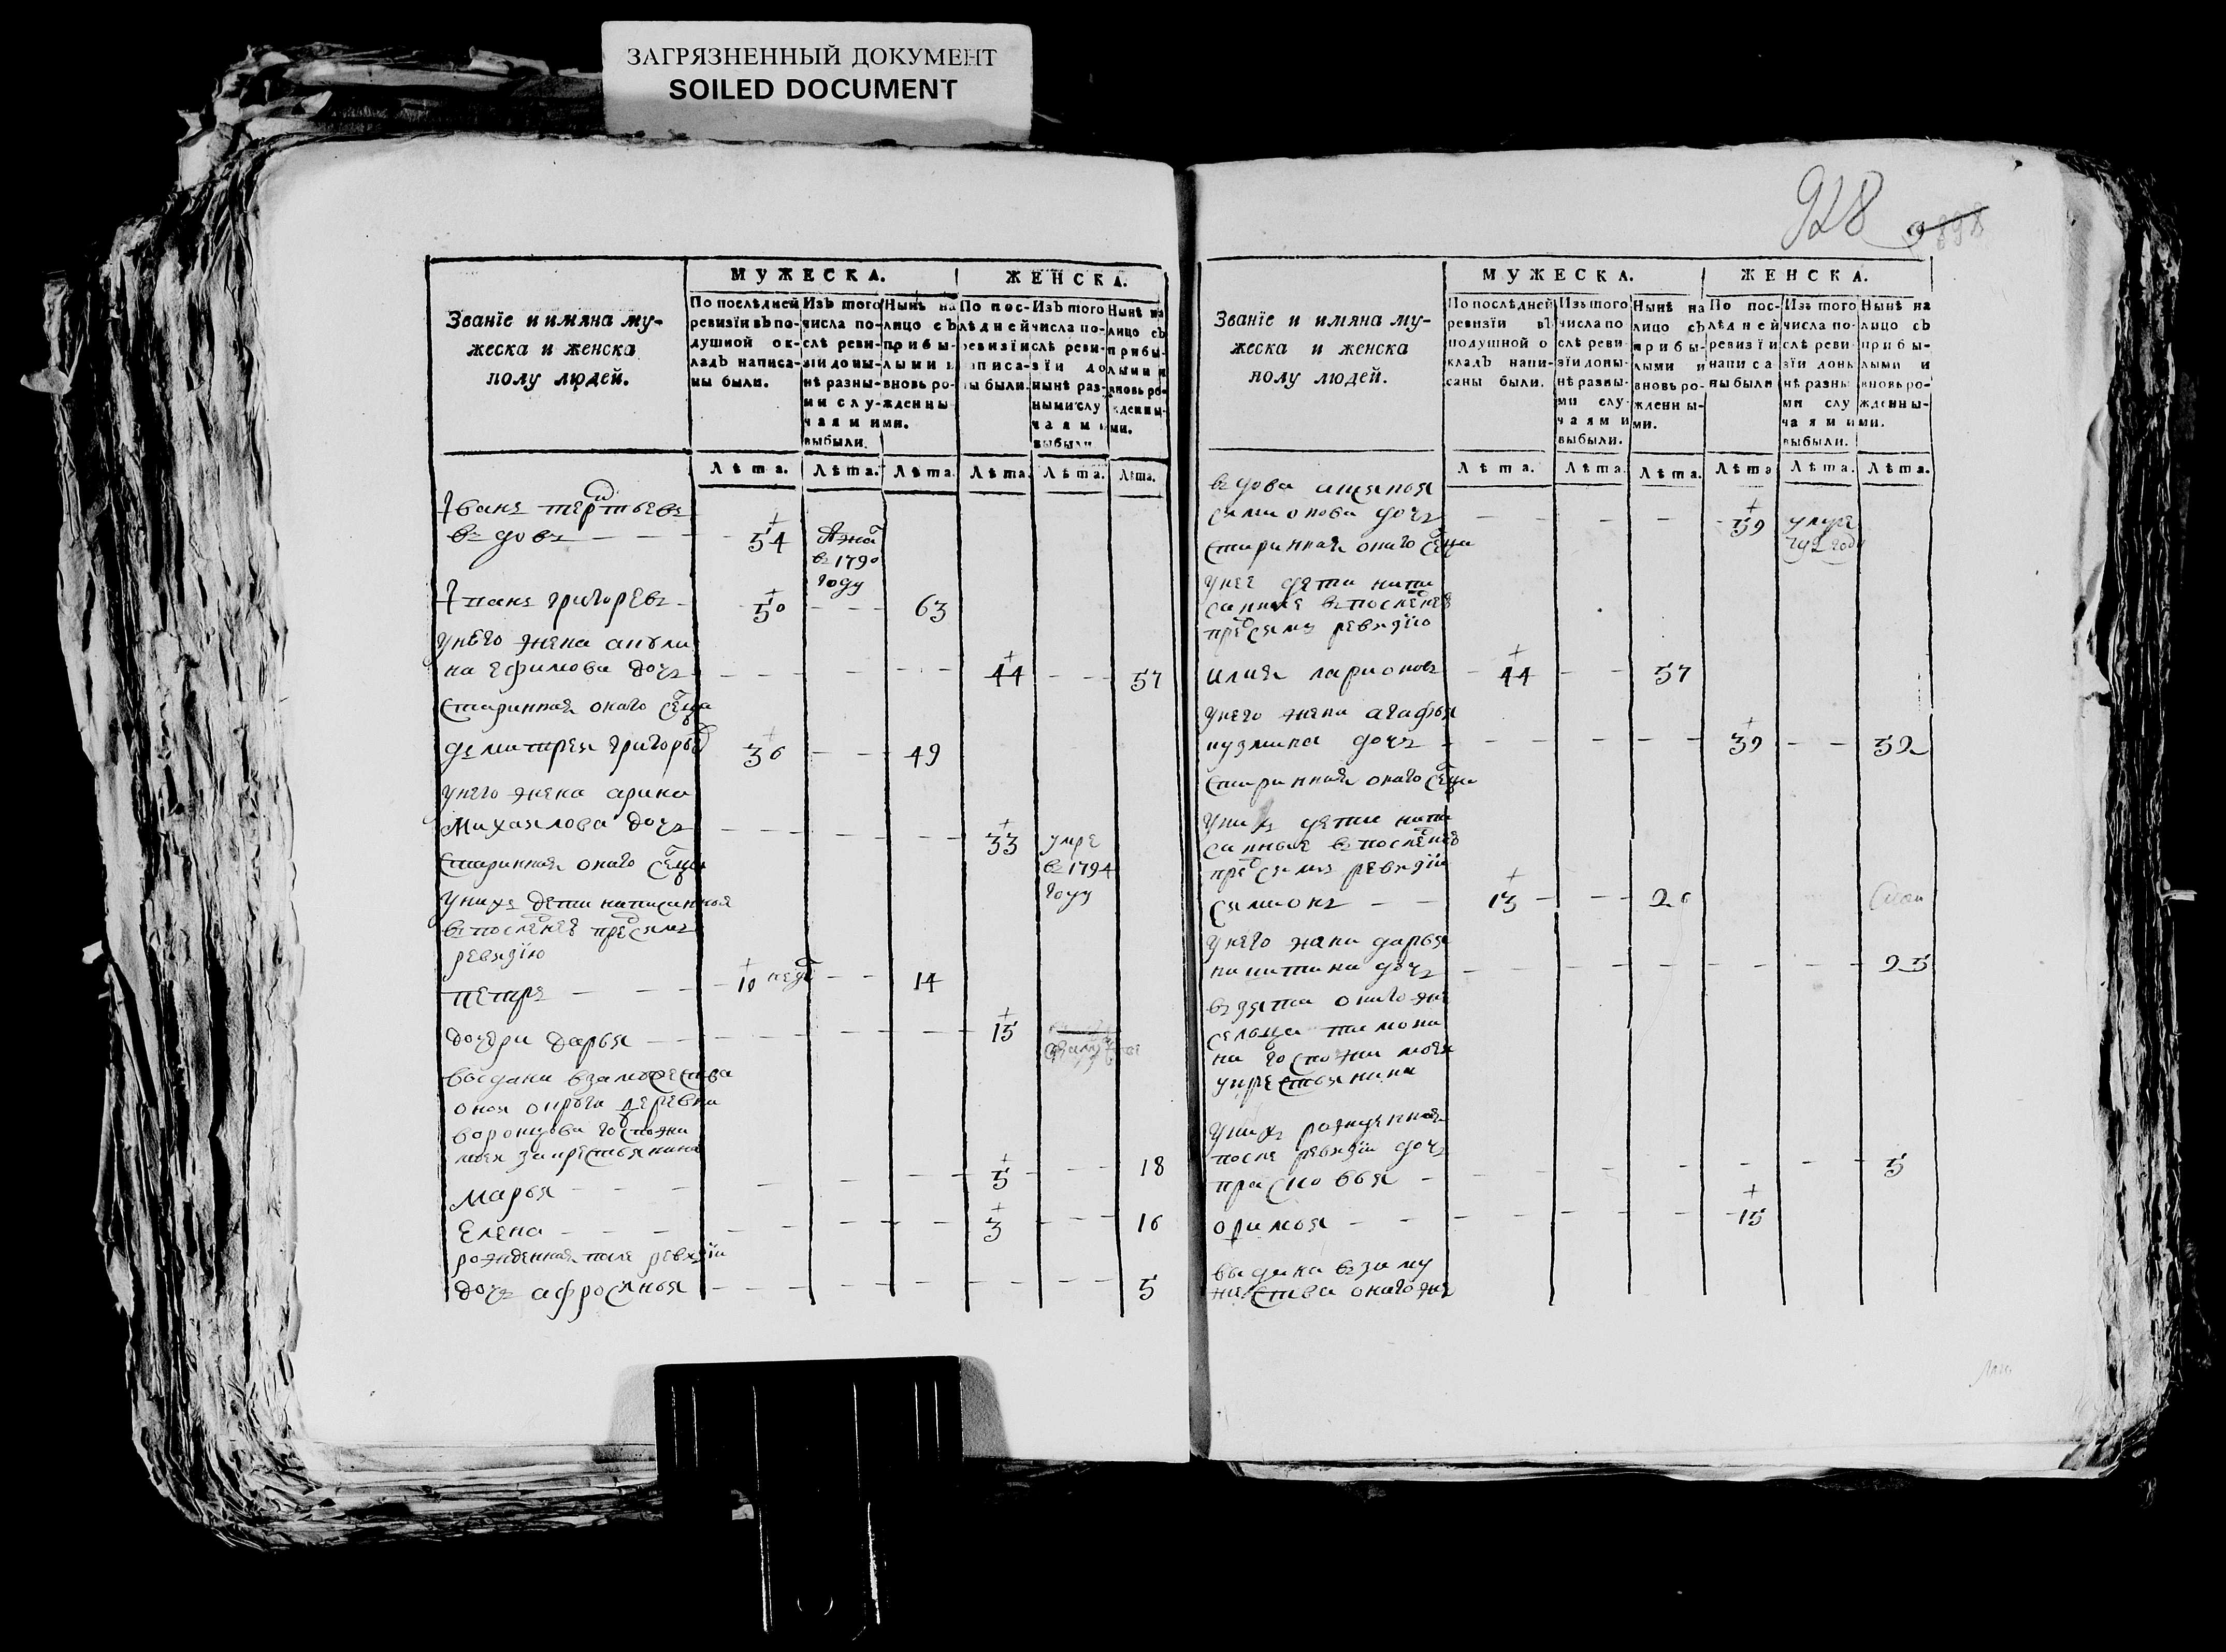 ЗАГРЯЗНЕННЫЙ ДОКУМЕНТ
SOILED DOCUMENT
928
Званїе и имяна му-
жеска и женска
полу людей.
МУЖЕСКА.
ЖЕНСКА.
По послѣдней ревизїи въ по-душной ок-ладъ написа-ны были.
Изъ того числа по-слѣ реви-зїи доны-нѣ разны-ми слу-чаями выбыли.
Нынѣ на лицо съ прибы-лыми и вновь ро-жденны-ми.
По пос-лѣдней ревизїи написа-ны были.
Изъ того числа по-слѣ реви-зїи до нынѣ раз-ными слу-чаями выбыли.
Нынѣ на лицо съ прибы-лыми и вновь ро-жденны-ми.
Лѣта. Лѣта. Лѣта. Лѣта. Лѣта. Лѣта.
вдовъ - - - 54
въ 1790
году
григоревъ - 50 - - 63
унего жена акули
на ефимова дочь - - - - 44 - - 57
старинная онаго селца
дмитрея григорьев 36 - - 49
унего жена арина
михаилова дочь - - - - 33 умре
въ 1794
году
старинная онаго селца
унихъ дети написанныя
въ последнеѣ предсимъ
ревизїю
петръ - - - 10 неде - - 14
дочери дарья - - - - 15
выдана взамужества
оноя округи деревни
воронцова госпожи
моея закрестьянина
марья - - - - - 5 - - 18
елена - - - - - 3 - - 16
рожденная после ревизїи
дочь афросинья - - - - - - 5
Званїе и имяна му-
жеска и женска
полу людей.
МУЖЕСКА.
ЖЕНСКА.
По послѣдней ревизїи въ подушной о кладъ напи-саны были.
Изъ того числа по слѣ реви зїи доны-нѣ разны-ми слу-чаями выбыли.
Нынѣ на лицо съ прибы-лыми и вновь ро-жденны-ми.
По пос-лѣдней ревизїи написа ны были
Изъ того числа по-слѣ реви зїи донь нѣ разны ми слу чаями выбыли.
Нынѣ на лицо съ прибы-лыми и вновь ро-жденны-ми.
Лѣта. Лѣта. Лѣта. Лѣта Лѣта. Лѣта.
вдова
симионова дочь - - - - 59 умре
792 году
старинная онаго селца
унее дети напи
санные въ последнеѣ
предсимъ ревизїю
илия ларионовъ - 44 - - 57
унего жена агафья
кузмина дочь - - - - 39 - - 52
старинная онаго селца
унихъ дети напи
санные въ последнеѣ
предсимъ ревизїи
симионъ - - 13 - - - 26
унего жена дарья
никитина дочь - - - - - - 25
взята онаго же
сельца тимони
на госпожи моея
укрестьянина
унихъ рожденная
после ревизїи дочь
прасковья - - - - 5
- - - - - 15
выдана взаму
жества онаго же